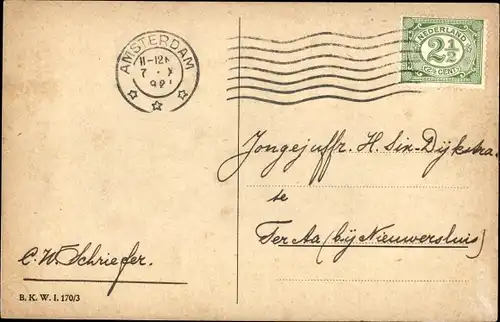 AMSTERDAM
11-12
7
NEDERLAND
2½
CENT
Jongejuffr. H. Six-Dijkstra.
te
Ter Aa (bij Nieuwersluis)
C. W. Schriefer.
B. K. W. I. 170/3